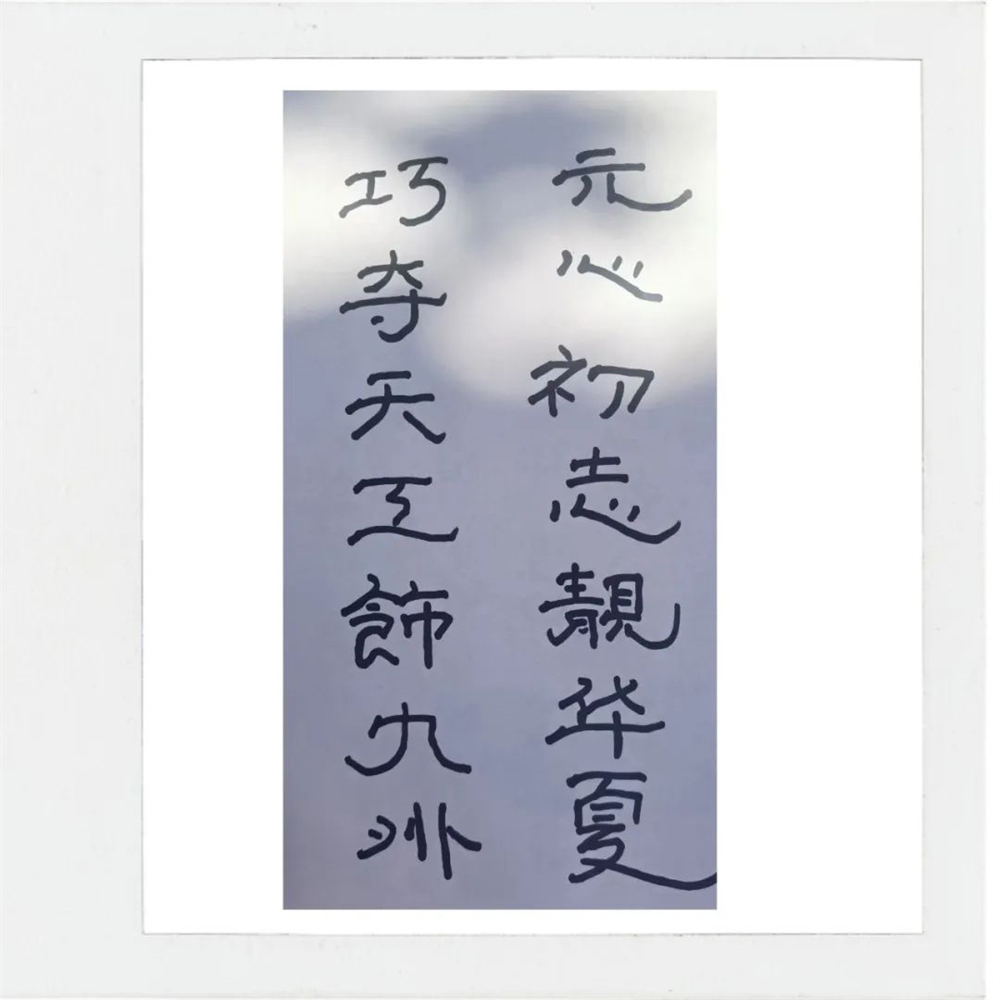 元心初志靓华夏
巧夺天工饰九州